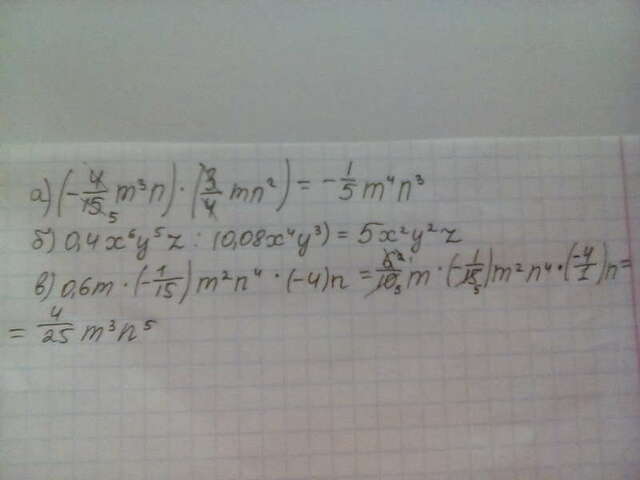 а) (-4/15 5 m³n) · (3/4 mn²) = -1/5 m⁴n³
б) 0,4x⁶y⁵z : (0,08x⁴y³) = 5x²y²z
в) 0,6m · (-1/15) m²n⁴ · (-4)n = 6/10 5 m · (-1/15 5) m²n⁴ · (-4/1) n =
= 4/25 m³n⁵